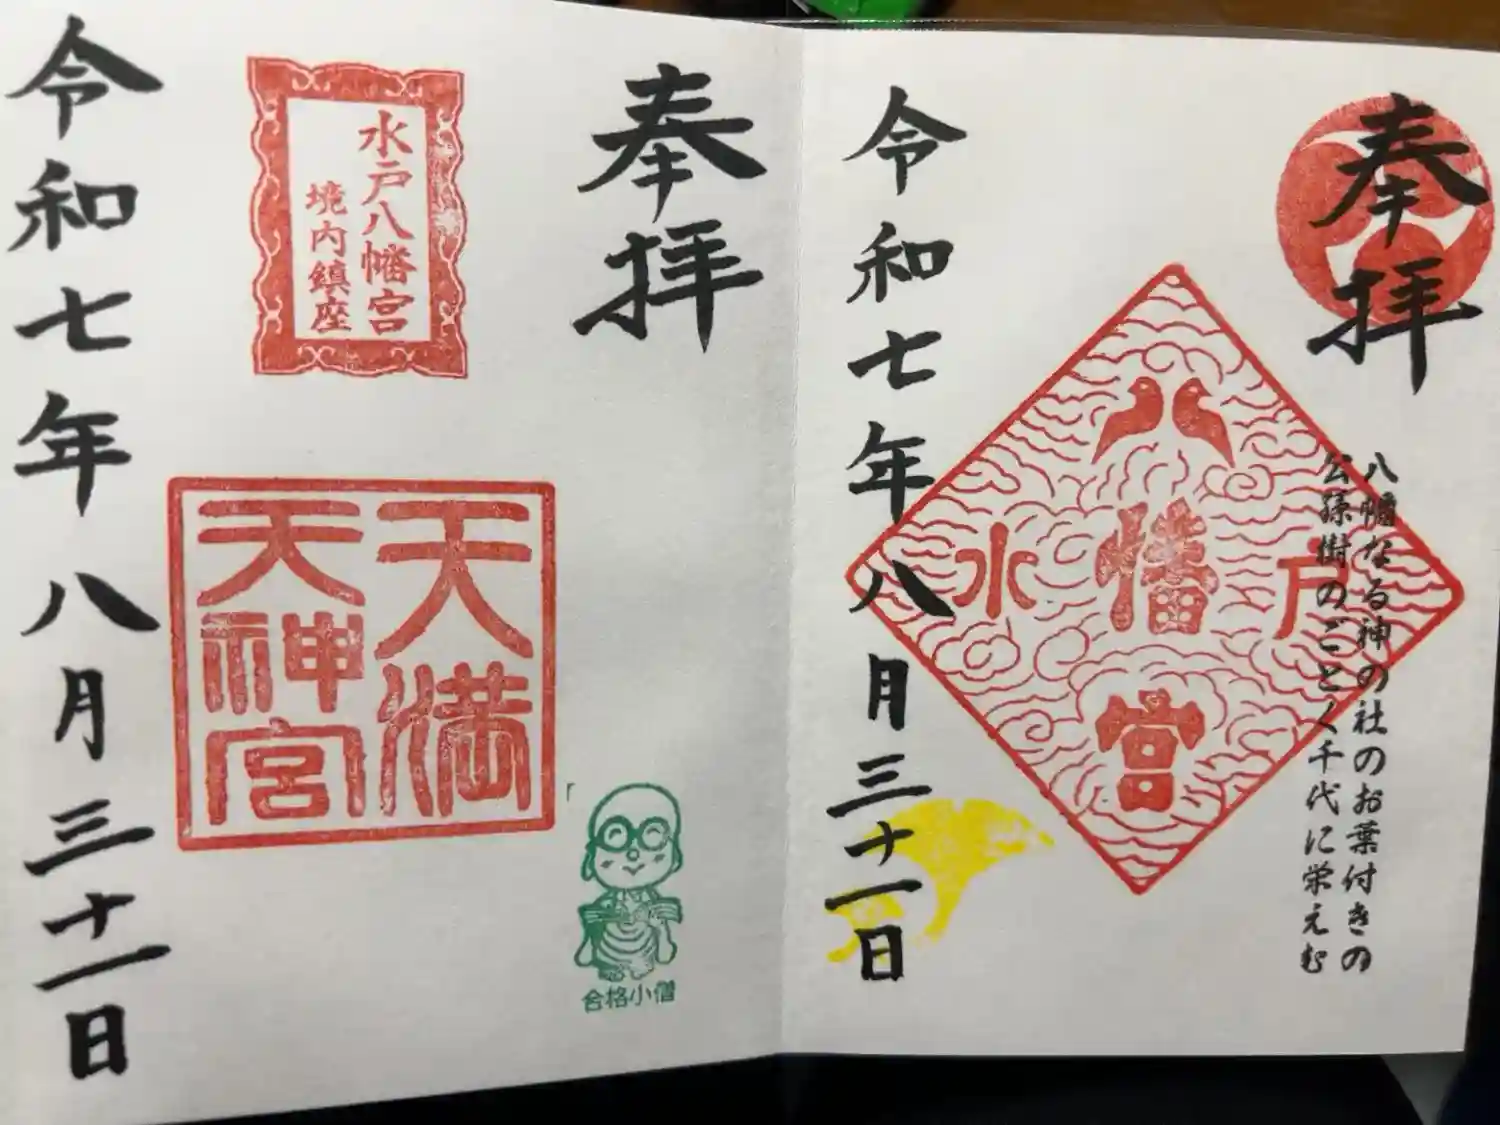 奉拝
八幡なる神の社のお葉付きの
公孫樹のごとく千代に栄えむ
八幡宮
水戸
令和七年八月三十一日
奉拝
水戸八幡宮
境内鎮座
天満
天神宮
合格小僧
令和七年八月三十一日